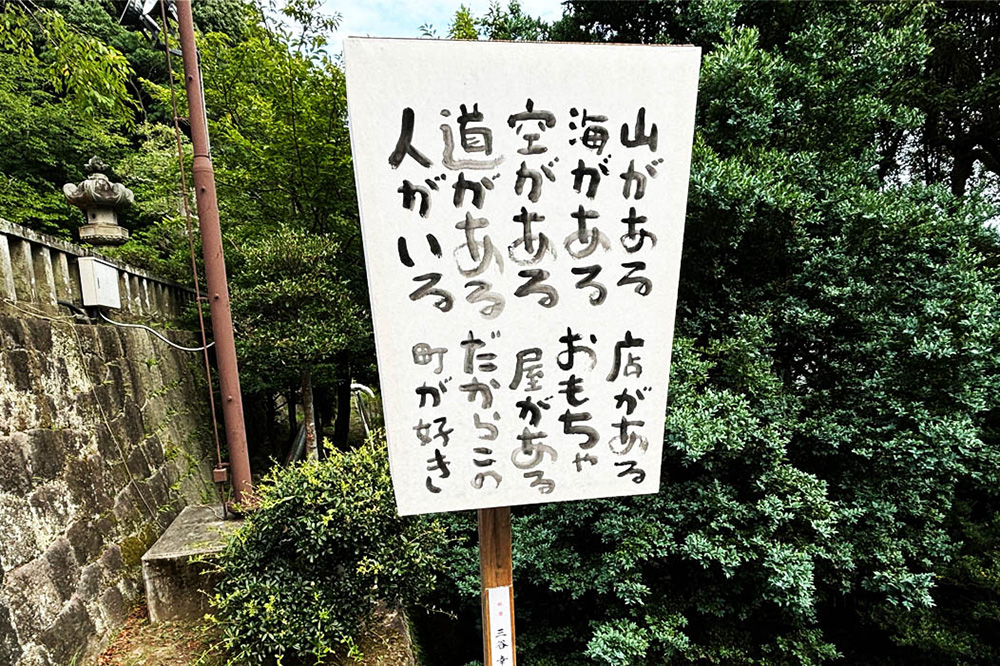 山がある
海がある
空がある
道がある
人がいる
店がある
おもちゃ
屋がある
だからこの
町が好き
三谷幸